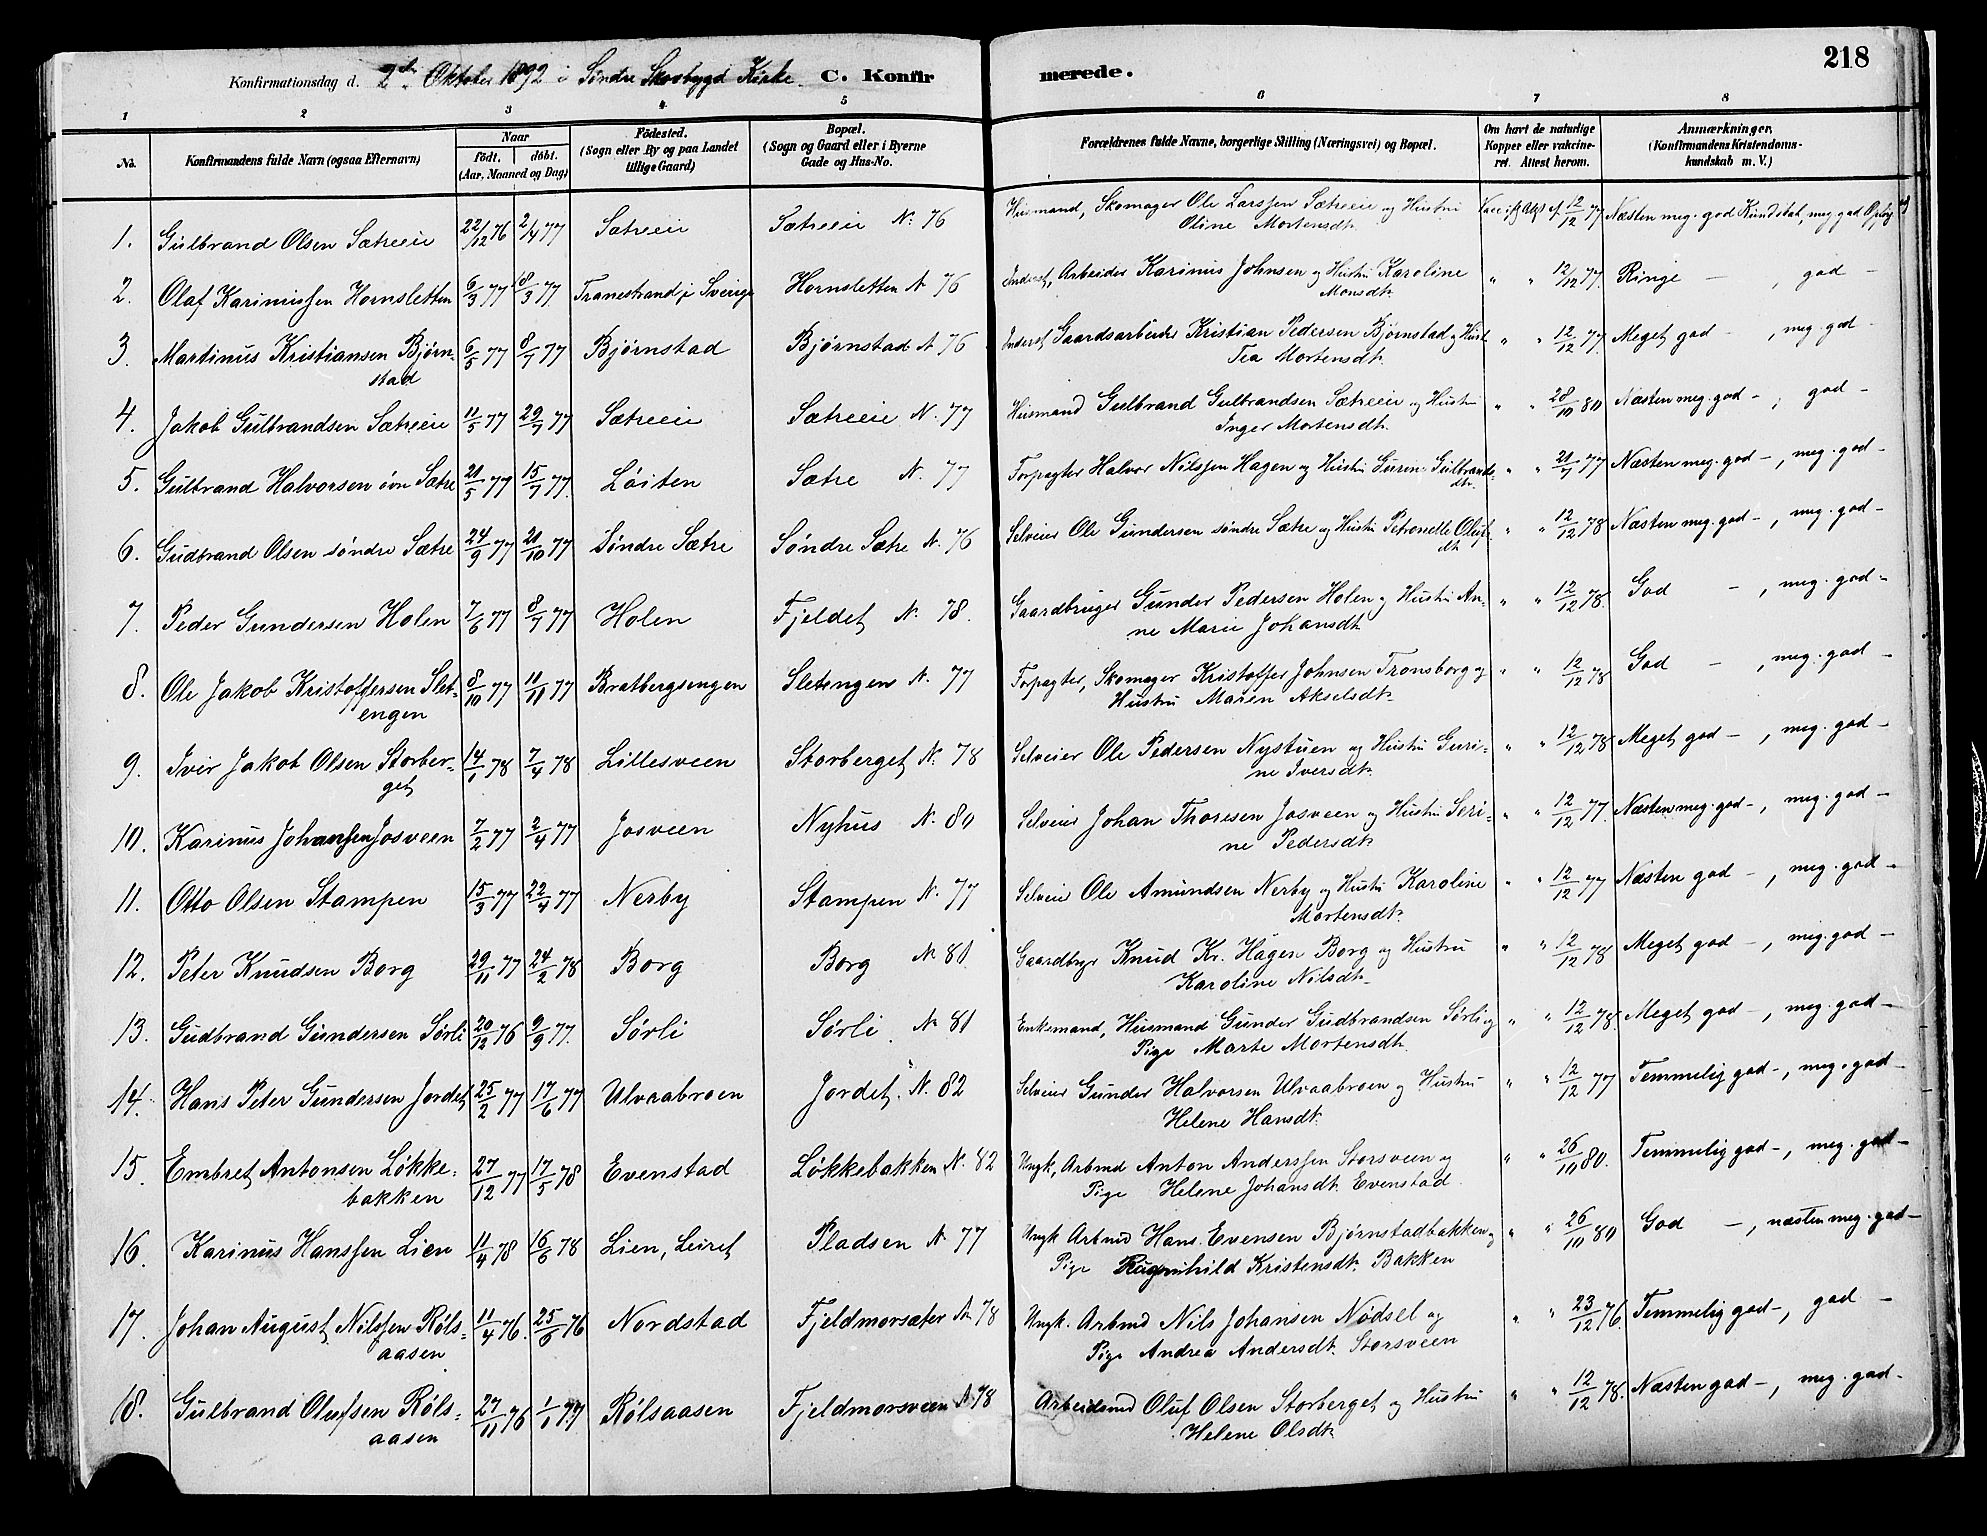 218
Konfirmationsdag d. 2den Oktober 1892 i Søndre Skovbygd Kirke. C. Konfirmerede.
1 2 3 4 5 6 7 8
No. Konfirmandens fulde Navn (ogsaa Efternavn) Naar født. døbt. (Aar, Maaned og Dag) Födested. (Sogn eller By og paa Landet tillige Gaard) Bopæl. (Sogn og Gaard eller i Byerne Gade og Hus-No. Forældrenes fulde Navne, borgerlige Stilling (Næringsvei) og Bopæl. Om havt de naturlige Kopper eller vakcineret. Attest herom. Anmærkninger, (Konfirmandens Kristendomskundskab m. V.)
1. Gulbrand Olsen Sætreeie 22/12 76 2/4 77 Sætreeie Sætreeie N. 76 Husmand, Skomager Ole Larssen Sætreeie og Hustru 12/12 77 Næsten meg. god Kundskab, meg. god
Oline Mortensdt.
2. Olaf Karinussen Hornsletten 6/3 77 18/3 77 Tranestrand i Sverige Hornsletten N. 76 Inderst, Arbeider Karinus Johnsen og Hustru Karoline " " 12/12 77. Ringe — , god —
Monsdt.
3. Martinus Kristiansen Bjørn- 6/5 77 8/7 77 Bjørnstad Bjørnstad N. 76 Inderst, Gaardsarbeider Kristian Pedersen Bjørnstad og Hust. " " 12/12 77. Meget god — , meg. god —
stad Tea Mortensdt.
4. Jakob Gulbrandsen Sætreeie 11/5 77 29/7 77 Sætreeie Sætreeie N. 77 Husmand Gulbrand Gulbrandsen Sætreeie og Hustru " " 28/10 80 Næsten meg. god —, god —
Inger Mortensdt.
5. Gulbrand Halvorsen øvre Sætre 21/5 77 15/7 77. Løiten Sætre N. 77 Forpagter Halvor Nilssen Hagen og Hustru Gurine Gulbrands- " " 21/7 77 Næsten meg. god —, meg. god —
dt.
6. Gudbrand Olsen søndre Sætre 24/9 77 21/10 77 Søndre Sætre Søndre Sætre N. 76 Selveier Ole Gundersen søndre Sætre og Hustru Petronelle Olufs- " " 12/12 78 Næsten meg. god —, meg. god —
dt.
7. Peder Gundersen Holen 7/6 77 8/7 77 Holen Fjeldet N. 78. Gaardbruger Gunder Pedersen Holen og Hustru An- " " 12/12 78. God — , meg. god —
ne Marie Johansdt.
8. Ole Jakob Kristoffersen Slet- 8/10 77 11/11 77 Bratbergsengen Sletengen N. 77 Forpagter, Skomager Kristoffer Johnsen Tronsborg og " " 12/12 78 God — , meg. god —
engen Hustru Maren Akselsdt.
9. Iver Jakob Olsen Storber- 14/1 78 7/4 78 Lillesveen Storberget N. 78 Selveier Ole Pedersen Nystuen og Hustru Guri- " " 12/12 78. Meget god —, meg. god —
get ne Iversdt.
10. Karinus Johanssen Josveen 7/2 77 2/4 77 Josveen Nyhus N. 80 Selveier Johan Thoresen Josveen og Hustru Seri- " " 12/12 77. Næsten meg. god —, meg. god —
ne Pedersdt.
11. Otto Olsen Stampen 15/3 77 22/4 77 Nerby Stampen N. 77 Selveier Ole Amundsen Nerby og Hustru Karoline " " 12/12 77 Næsten god —, meg. god —
Mortensdt.
12. Peter Knudsen Borg 29/11 77 24/2 78 Borg Borg N. 81 Gaardbrger Knud Kr. Hagen Borg og Hustru " " 12/12 78 Meget god —, meg. god —
Karoline Nilsdt.
13. Gudbrand Gundersen Sørli 20/12 76 9/9 77. Sørli Sørli N. 81 Enkemand, Husmand Gunder Gudbrandsen Sørli og " " 12/12 78. Meget god —, meg. god —
Pige Marte Mortensdt.
14. Hans Peter Gundersen Jordet 25/2 77 17/6 77 Ulvaabroen Jordet N. 82 Selveier Gunder Halvorsen Ulvaabroen og Hustru " " 12/12 77 Temmelig god —, meg. god —
Helene Hansdt.
15. Embret Antonsen Løkke- 27/12 77 17/5 78 Evenstad Løkkebakken N. 82 Ungk. Arbmd Anton Anderssen Storsveen og " " 26/10 80. Temmelig god —, meg. god —
bakken Pige Helene Johansdt. Evenstad.
16. Karinus Hanssen Lien 11/4 78 16/6 78 Lien, Leiret Pladsen N. 77 Ungk. Arbmd Hans Evensen Bjørnstadbakken og " " 26/10 80 God —, næsten meg. god —
Pige Ragnhild Kristensdt. Bakken
17. Johan August Nilssen Røls- 11/4 76. 25/5 76 Nordstad Fjeldmorsæter N. 78 Ungk. Arbmd Nils Johansen Nødsel og " " 23/12 76. Temmelig god —, god —
aasen Pige Andrea Andersdt. Storsveen
18. Gulbrand Olufsen Røls- 27/11 76 1/1 77 Rølsaasen Fjeldmorsveen N. 78 Arbeidsmd Oluf Olsen Storberget og Hustru " " 12/12 78. Næsten god —, meg. god —
aasen Helene Olsdt.